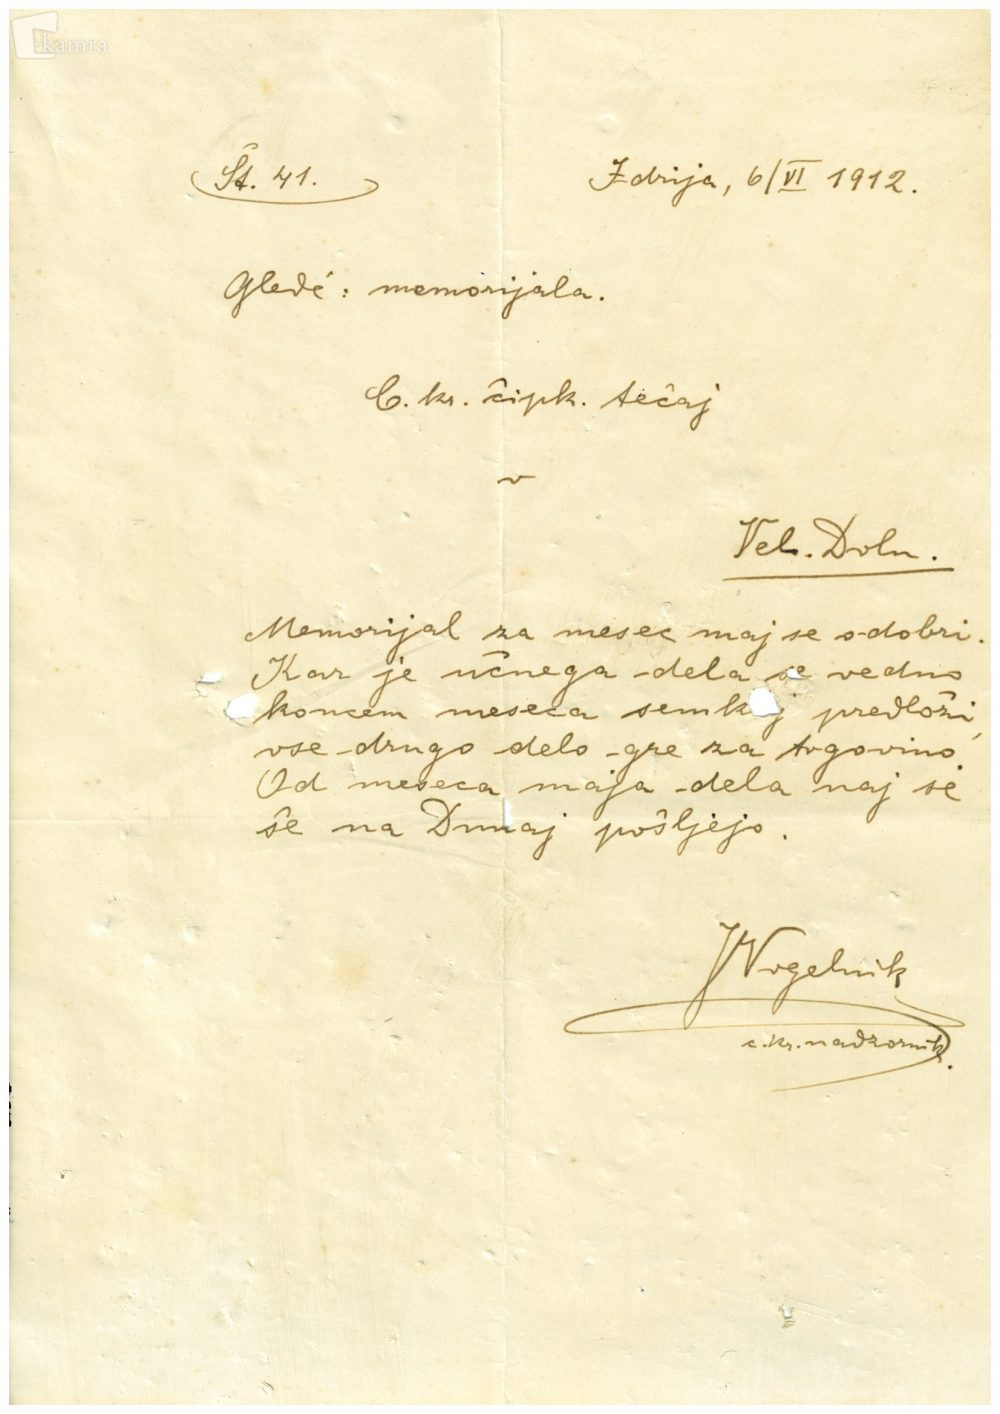 kamra
Št. 41.
Idrija, 6/VI 1912.
Gledé: memorijala.
C. kr. čipk. tečaj
v
Vel. Dolu.
Memorijal za mesec maj se odobri.
Kar je učnega dela se vedno
koncem meseca semkaj predloži,
vse drugo delo gre za trgovino.
Od meseca maja dela naj se
še na Dunaj pošljejo.
JVogelnik
c. kr. nadzornik.